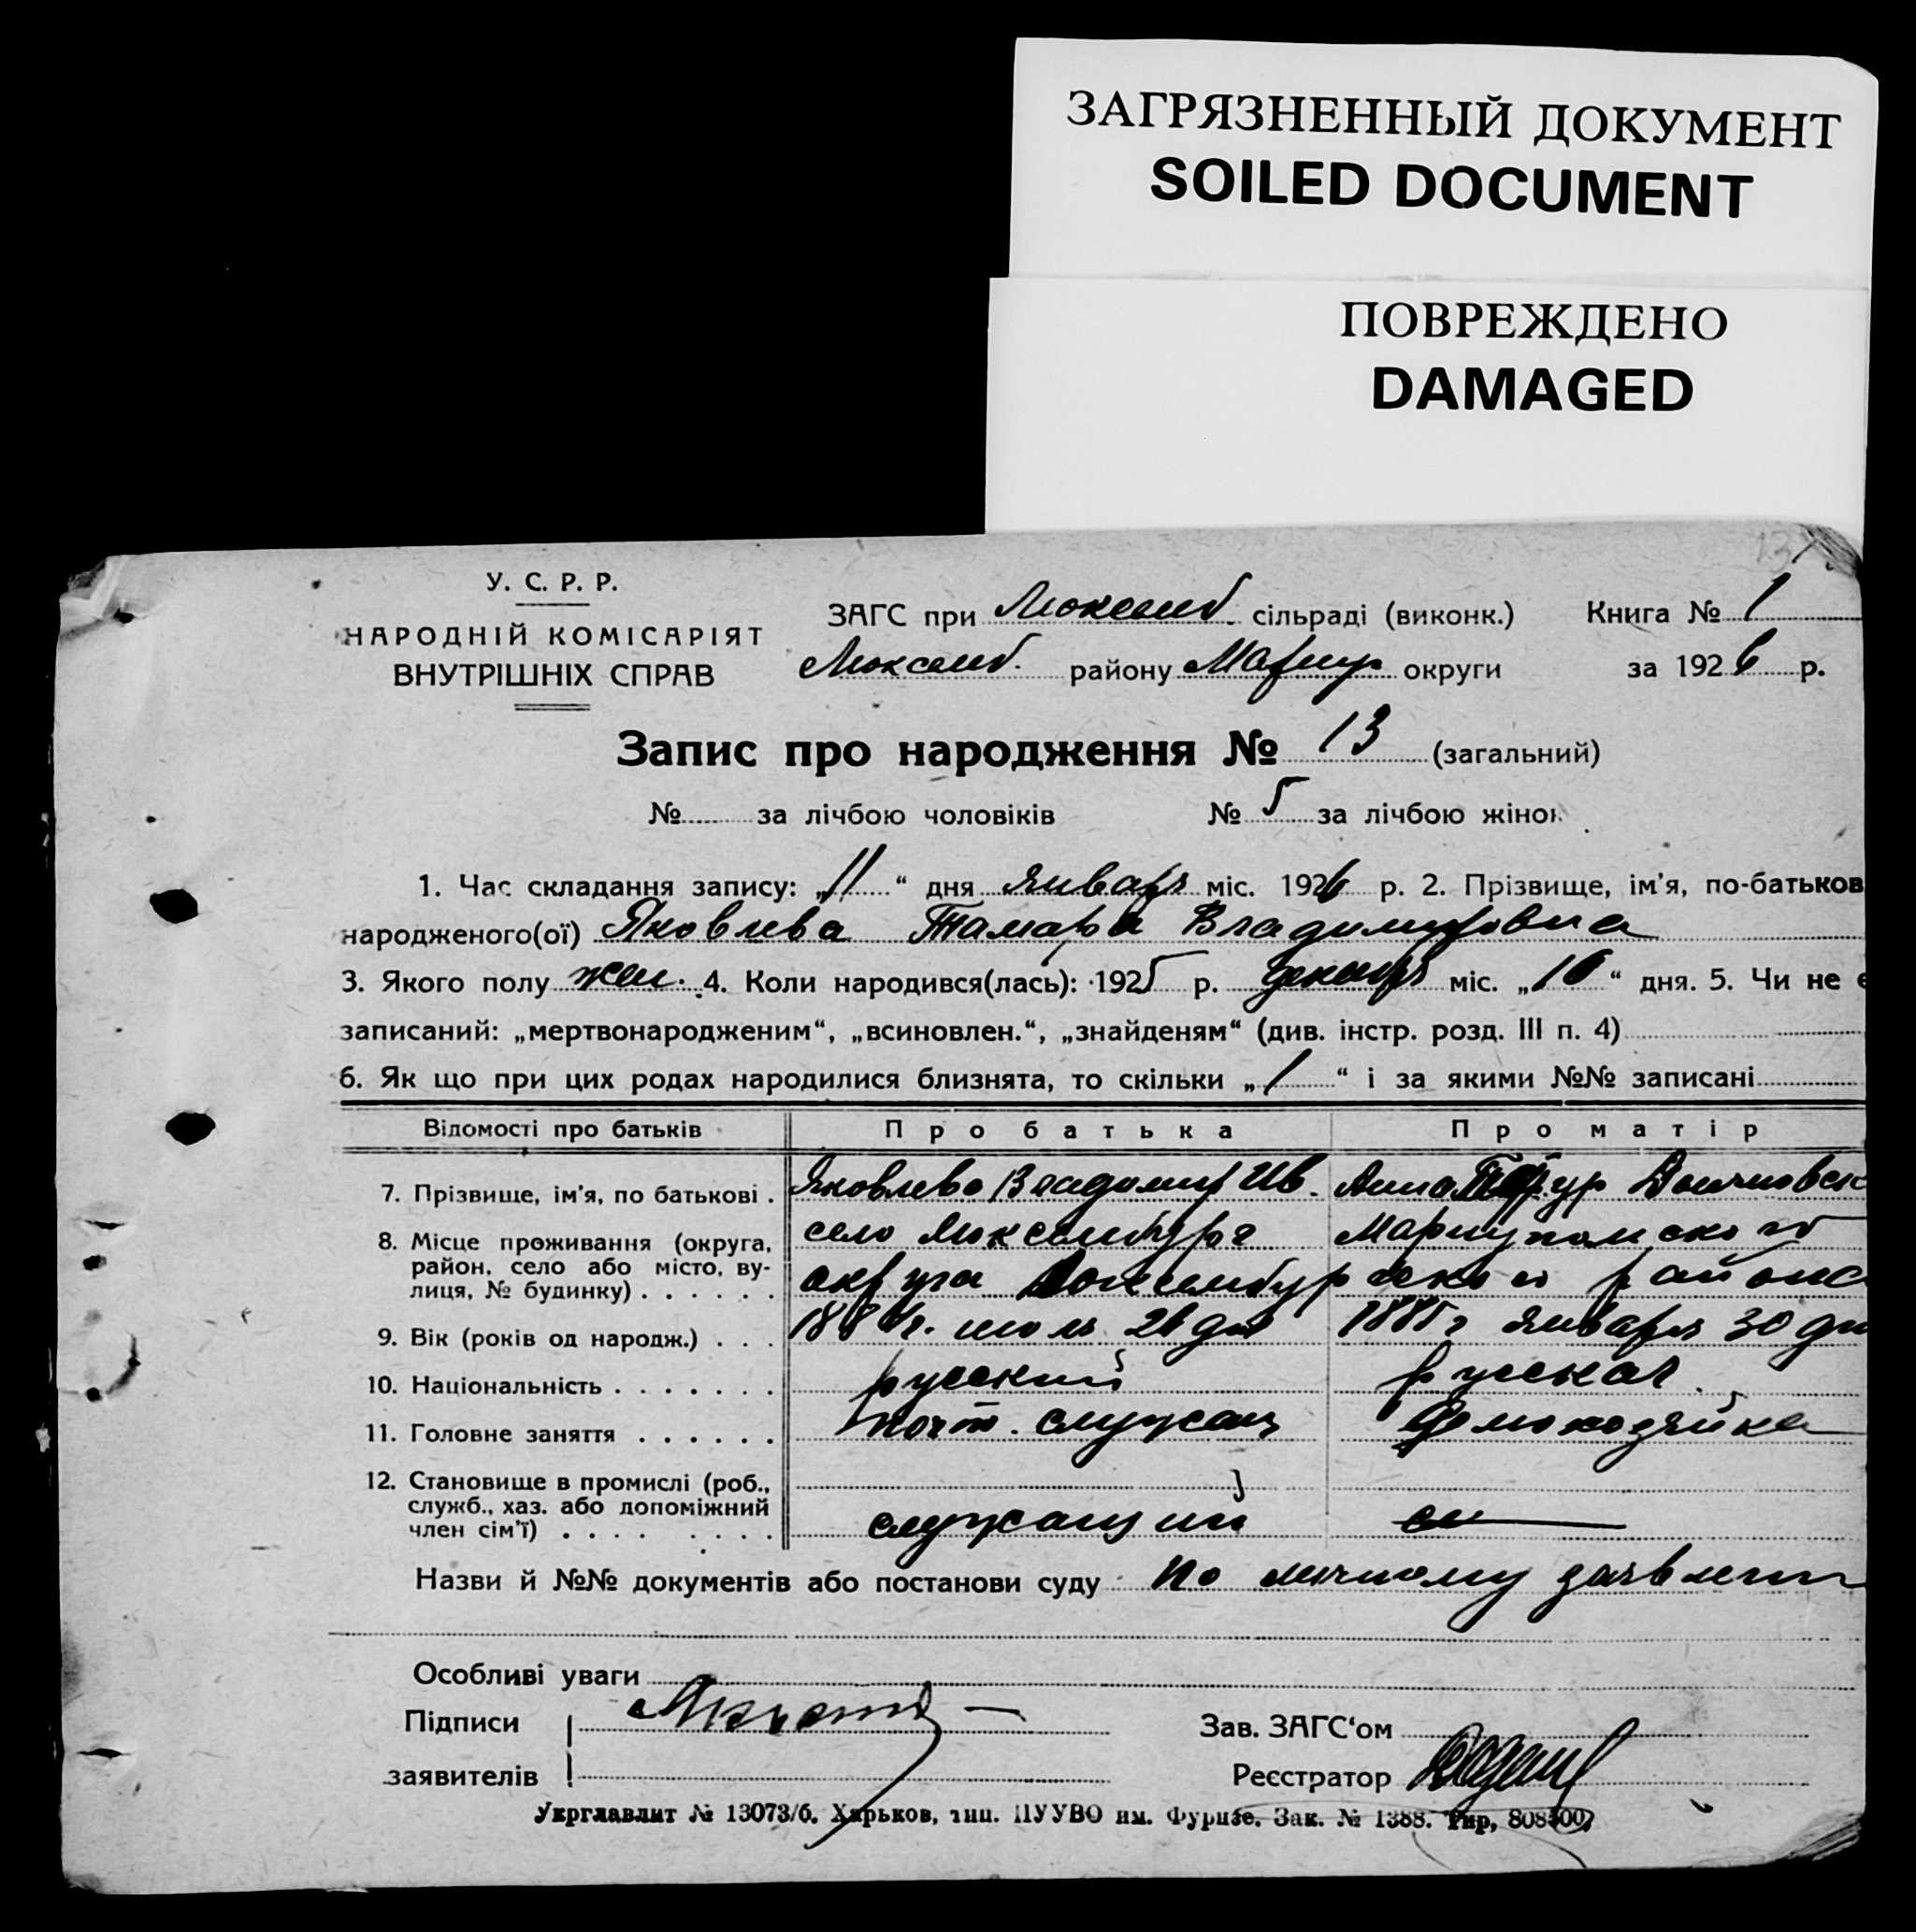 ЗАГРЯЗНЕННЫЙ ДОКУМЕНТ
SOILED DOCUMENT
ПОВРЕЖДЕНО
DAMAGED
У. С. Р. Р.
НАРОДНІЙ КОМІСАРІЯТ
ВНУТРІШНІХ СПРАВ
ЗАГС при Люксемб. сільраді (виконк.) Книга № 1
Люксемб. району Мариуп округи за 1926 р.
Запис про народження № 13 (загальний)
№ за лічбою чоловіків № 5 за лічбою жінок
1. Час складання запису: „11“ дня января міс. 1926 р. 2. Прізвище, ім'я, по-батьков
народженого(ої) Яковлева Тамара Владимировна
3. Якого полу жен. 4. Коли народився(лась): 1925 р. декабря міс. „10“ дня. 5. Чи не є
записаний: „мертвонародженим“, „всиновлен.“, „знайденям“ (див. інстр. розд. III п. 4)
6. Як що при цих родах народилися близнята, то скільки „1“ і за якими №№ записані
Відомості про батьків Про батька Про матір
7. Прізвище, ім'я, по батькові . Яковлево Владимир Ив. Анна
8. Місце проживання (округа, район, село або місто, вулиця, № будинку) . . . . . . село Люксембург Мариупольского
округа Люксембургского района
9. Вік (років од народж.) . . . июль 26 дня января 30 дн
10. Національність . . . . . . . русский русская
11. Головне заняття . . . . . . почт. служащ домохозяйка
12. Становище в промислі (роб., служб., хаз. або допоміжний член сім'ї) . . . . . . . . служащий
Назви й №№ документів або постанови суду по личному заявлени
Особливі уваги
Підписи
Зав. ЗАГС'ом
заявителів
Реєстратор
Укрглавлит № 13073/б. Харьков, тип. ПУУВО им. Фрунзе. Зак. № 1388. Тир, 808500